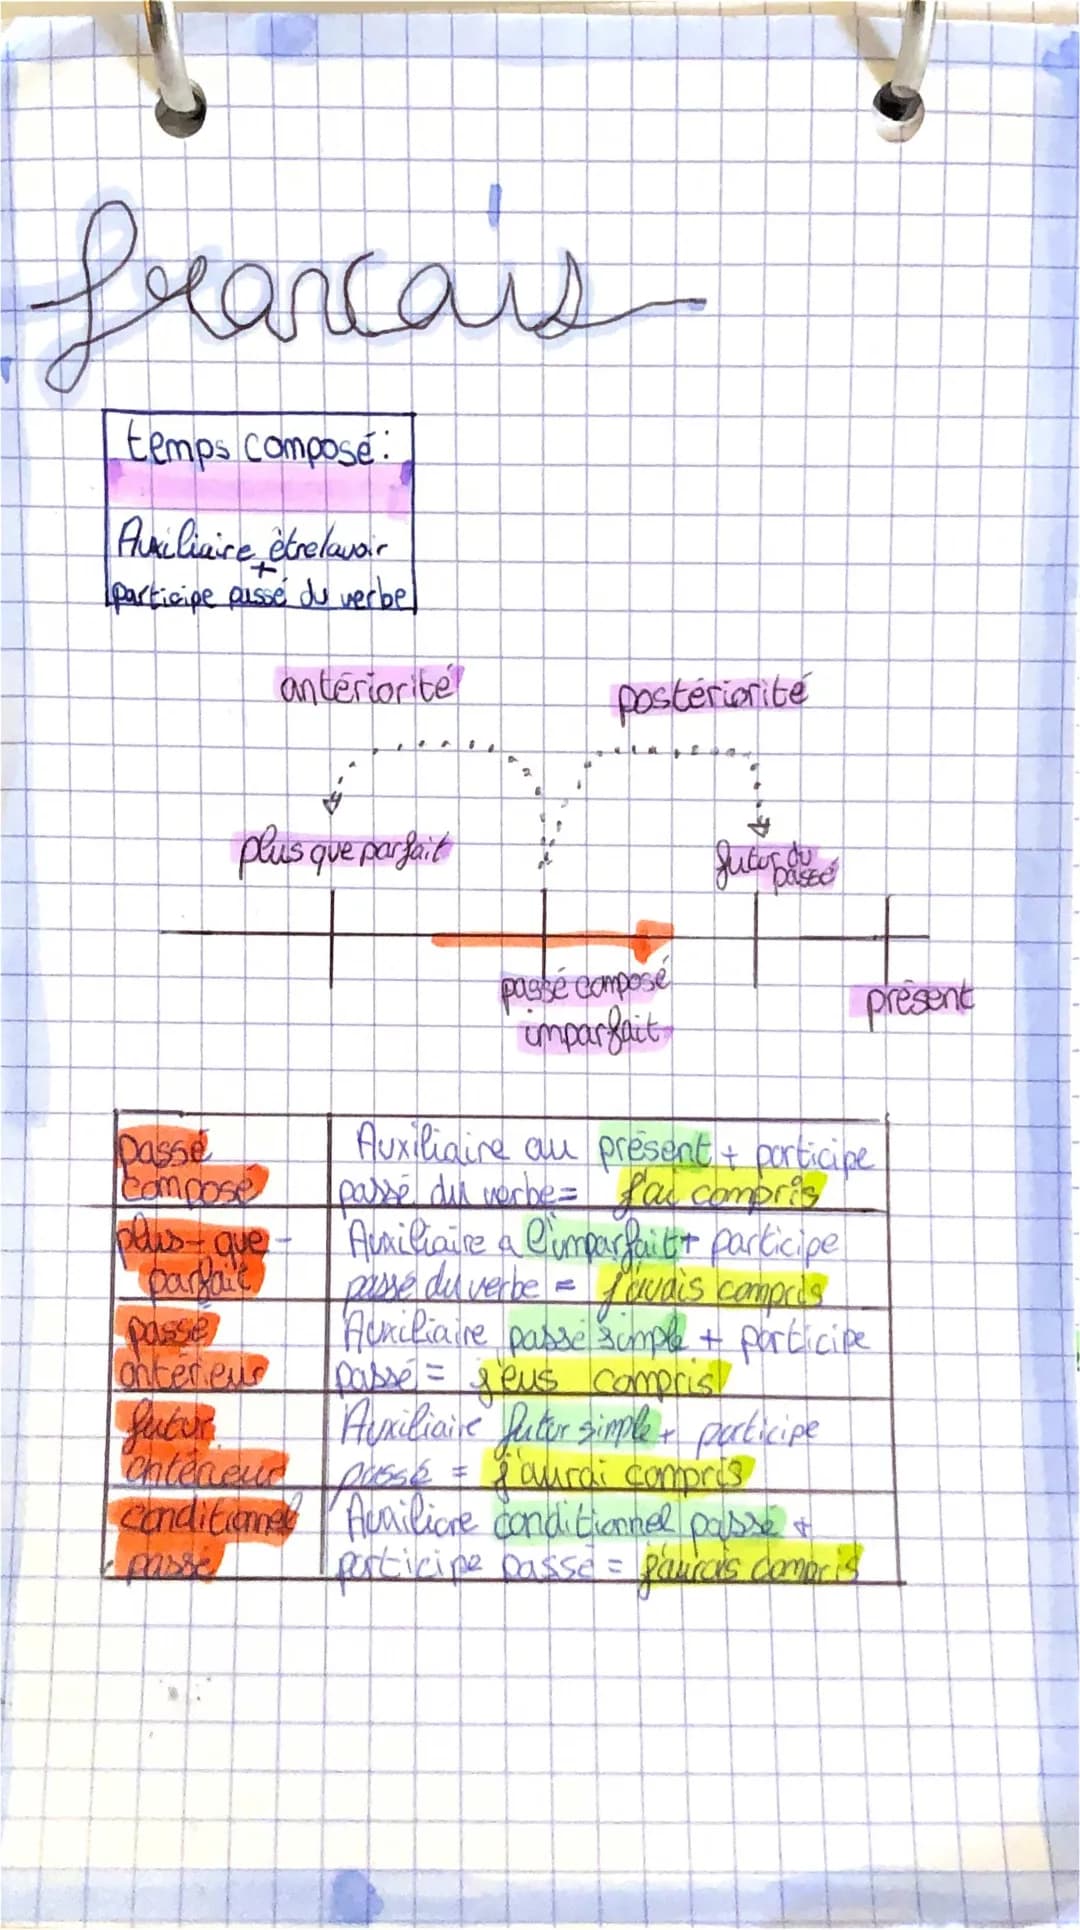 francais
temps composé:
Auxiliaire être/avoir
+
participe passé du verbe
antériorité
postériorité
plus que parfait
futur du
passé
passé composé
imparfait
présent
passé
composé
Auxiliaire au présent + participe
passé du verbe = j'ai compris
plus-que-
parfait
Auxiliaire a l'imparfait + participe
passé du verbe = j'avais compris
passé
antérieur
Auxiliaire passé simple + participe
passé = j'eus compris
futur
antérieur
Auxiliaire futur simple + participe
passé = j'aurai compris
conditionnel
passé
Auxiliare conditionnel passé +
participe passé = j'aurais compris